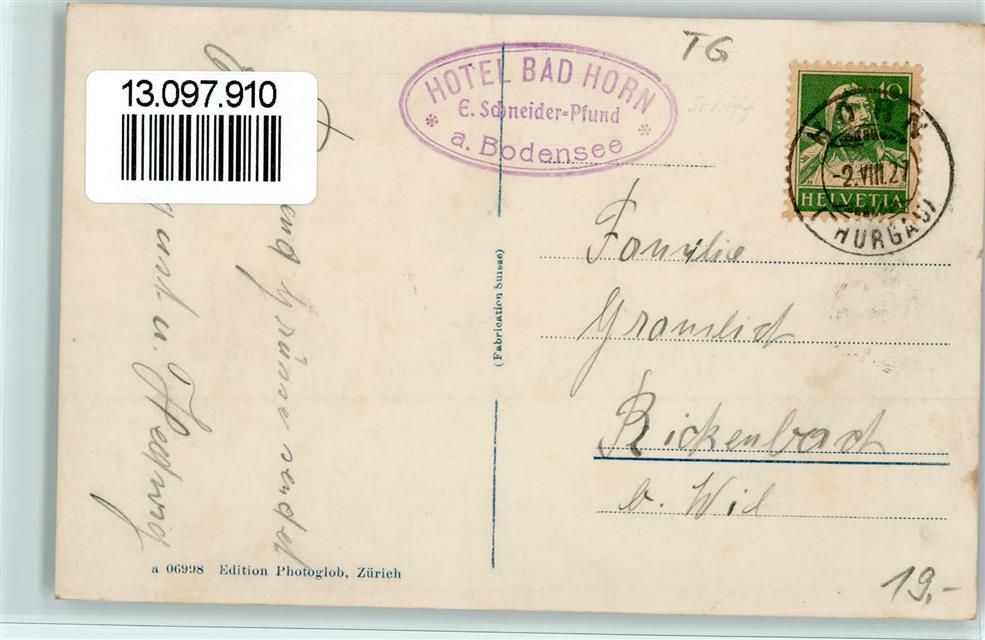 13.097.910
HOTEL BAD HORN
E. Schneider=Pfund
a. Bodensee
TG
Schiff
10
HELVETIA
HORN
-2.VIII.2
(THURGAU)
(Fabrication Suisse)
Familie
Gramlich
Rickenbach
b. Wil
Grüsse sendet
u. Hedwig
a 06998 Edition Photoglob, Zürich
19.-